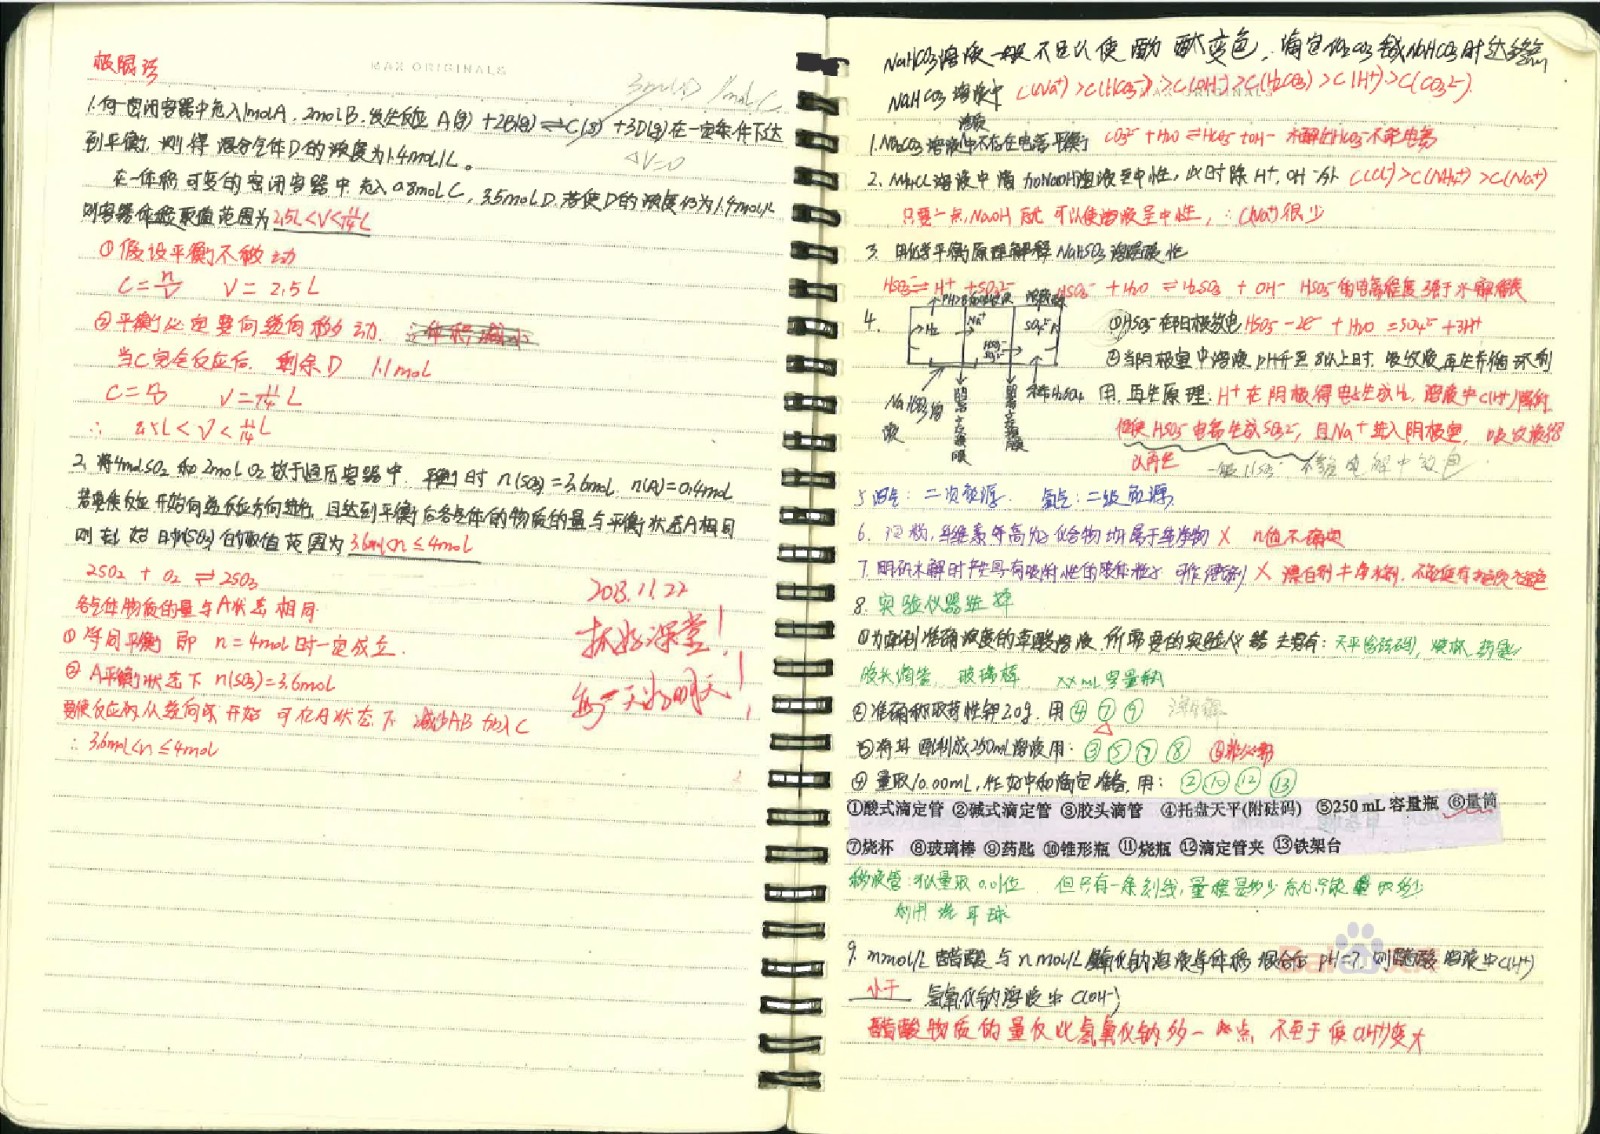 极限法
MAX ORIGINALS
3molD 1molC
1.向一密闭容器中充入1molA, 2molB.发生反应 A(g) +2B(g)⇌C(g) +3D(g)在一定条件下达
到平衡,测得混合气体D的浓度为1.4mol/L。
△V=0
在一体积可变的密闭容器中充入0.8molC, 3.5molD.若使D的浓度仍为1.4mol/L
则容器体积取值范围为2.5L<V<11/14L
①假设平衡不移动
C=n/V V=2.5L
②平衡必定要向逆向移动.
当C完全反应后. 剩余D 1.1mol
C=n/V V=11/14L
∴ 2.5L<V<11/14L
2. 将4molSO₂和2molO₂放于恒压容器中. 平衡时 n(SO₃)=3.6mol. n(A)=0.4mol
若要使反应开始向逆反应方向进行,且达到平衡后各气体的物质的量与平衡状态A相同
则起始时n(SO₃)的取值范围为3.6mol<n≤4mol
2SO₂ + O₂ ⇌ 2SO₃
各气体物质的量与A状态相同
①等同平衡 即 n=4mol时一定成立.
②A平衡状态下 n(SO₃)=3.6mol
要使反应从逆向开始 可在A状态下 减少AB加入C
∴3.6mol<n≤4mol
2013.11.22
抓好课堂!
每一天为明天!
NaHCO₃溶液一般不足以使酚酞变色,滴定Na₂CO₃ 制NaHCO₃时达终点
NaHCO₃溶液中 C(Na⁺)>C(HCO₃⁻)>C(OH⁻)>C(H₂CO₃)>C(H⁺)>C(CO₃²⁻)
MAX ORIGINALS
1.Na₂CO₃溶液中不存在电离平衡 CO₃²⁻+H₂O⇌HCO₃⁻+OH⁻ 水解的HCO₃⁻不能电离
2. NH₄Cl溶液中滴加NaOH溶液至中性,此时除H⁺,OH⁻外 C(Cl⁻)>C(NH₄⁺)>C(Na⁺)
只要一点NaOH 就可以使溶液呈中性, ∴C(Na⁺)很少
3. 用化学平衡原理解释NaHSO₃溶液酸性
HSO₃⁻⇌H⁺+SO₃²⁻ HSO₃⁻+H₂O⇌H₂SO₃+OH⁻ HSO₃⁻的电离程度强于水解程度
4.
H₂
Na⁺
SO₄²⁻
HSO₃⁻
NaHSO₃溶液
阳离子交换膜
阴离子交换膜
稀H₂SO₄
①HSO₃⁻在阳极放电HSO₃⁻-2e⁻+H₂O=SO₄²⁻+3H⁺
②当阴极室中溶液pH升至8以上时,吸收液再生并循环利
用,再生原理:H⁺在阴极得电子生成H₂,溶液中C(H⁺)降低
促使HSO₃⁻电离生成SO₃²⁻,且Na⁺进入阴极室,吸收液得
以再生
一般HSO₃⁻不能电解中放电.
5.沼气:二次能源. 氢气:二级能源.
6. 淀粉,纤维素等高分子化合物均属于纯净物 × n值不确定
7.明矾水解时产生具有吸附性的胶体粒子 可作漂白剂 × 漂白剂≠净水剂,不能使有色物质褪色
8.实验仪器选择
①为配制准确浓度的草酸溶液.所需要的实验仪器主要有:天平(含砝码),烧杯,药匙,
胶头滴管, 玻璃棒 XXmL容量瓶
②准确称取苛性钾20g.用④⑦⑨
③将其配制成250mL溶液用:③⑤⑦⑧ ⑥非必要
④量取10.00mL,作好中和滴定准备.用:②⑩⑫⑬
①酸式滴定管 ②碱式滴定管 ③胶头滴管 ④托盘天平(附砝码) ⑤250 mL 容量瓶 ⑥量筒
⑦烧杯 ⑧玻璃棒 ⑨药匙 ⑩锥形瓶 ⑪烧瓶 ⑫滴定管夹 ⑬铁架台
移液管:可以量取0.01位. 但只有一条刻线,量程是多少
利用洗耳球
9. mmol/L 醋酸与nmol/L氢氧化钠溶液等体积混合后 pH=7. 则醋酸溶液中C(H⁺)
小于 氢氧化钠溶液中C(OH⁻)
醋酸物质的量仅比氢氧化钠多一点 不至于使C(H⁺)变大